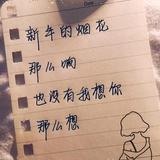 新年的烟花
那么响
也没有我想你
那么想